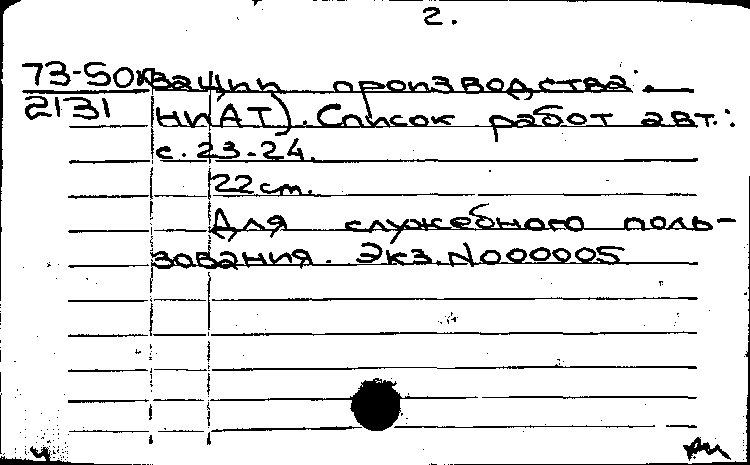 2.
73-50к зации производства.
2131 НИАТ). Список работ авт.:
с. 23-24.
22 см.
Для служебного поль-
зования. Экз. N000005